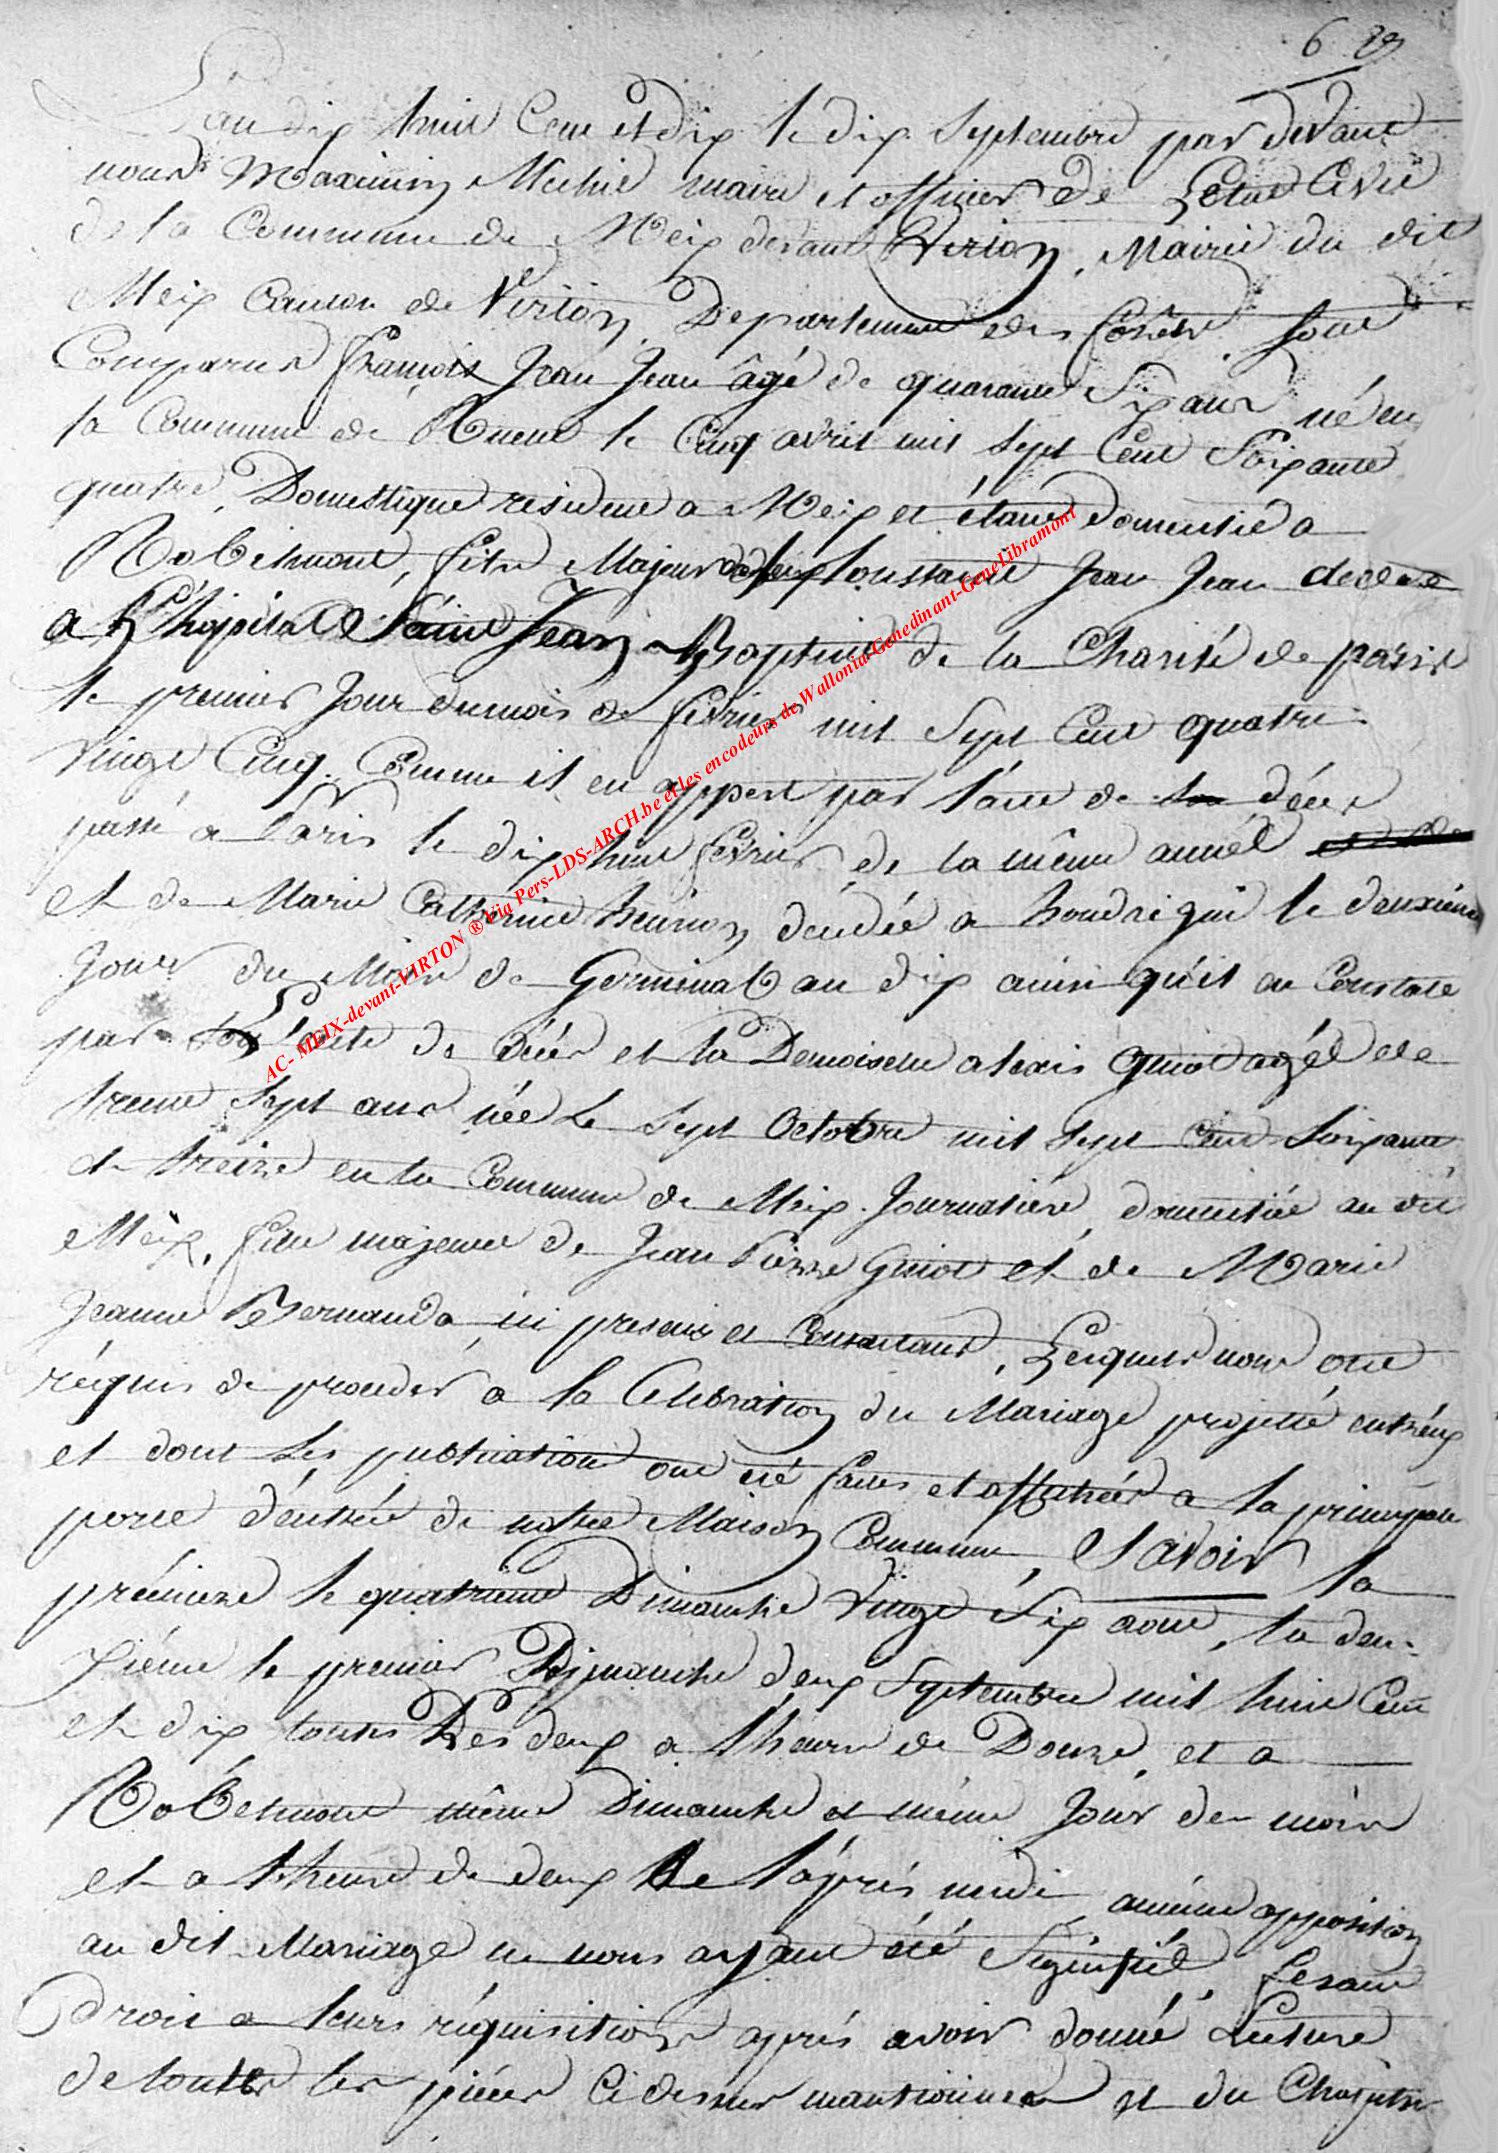 6
L'an dix huit Cent et dix le dix Septembre par devant
nous Maximin Michel maire et officier de L'Etat Civil
de la Commune de Meix devant Virton, Mairie du dit
Meix Canton de Virton, Departement des forêts, sont
Comparus François Jean Jean âgé de quarante Six ans né en
la Commune de le Cinq avril mil sept Cent Soixante
quatre, Domestique resident a Meix et étant domicilié a
Robelmont, fils Majeur de feu Toussaint Jean Jean decedé
a L'hôpital Saint Jean Baptiste de la Charité de paris
le premier Jour du mois de fevrier mil Sept Cent quatre
Vingt Cinq. Comme il en appert par l'acte de décès
passé a Paris le dix huit fevrier de la même année
et de Marie Catherine henrion décédée a houdrigni le deuxième
Jour du Mois de Germinal an dix ainsi qu'il en Constate
par l'acte de décès et la Demoiselle alexis Guiot agée de
trente Sept ans née Le Sept Octobre mil Sept Cent Soixante
et treize en la Commune de Meix Journalière, domiciliée au dit
Meix, fille majeure de Jean Pierre Guiot et de Marie
Jeanne Bernarda, ici presens et Consentans, Lesquels nous ont
réquis de proceder a la Celebration du Mariage projetté entr'éux
et dont Les publications ont été faites et affichées a la principale
porte d'éntrée de notre Maison Commune, Savoir la
prémiere le quatrième Dimanche Vingt Six aout, la deu-
xiéme le premier Dimanche deux Septembre mil huit Cent
et dix toutes Les deux a l'heure de Douze, et a
Robelmont même Dimanche et même Jour de mois
et a l'heure de deux de l'après midi aucune opposition
au dit Mariage ne nous ayant été Signifiée, fesant
Droit a leurs réquisitions après avoir donné Lecture
de toutes les pièces Ci dessus mentionnées et du Chapitre
AC- MEIX-devant-VIRTON ® Via Pers-LDS-ARCH.be et les encodeurs de Wallonia-Genedinant-GeneLibramont